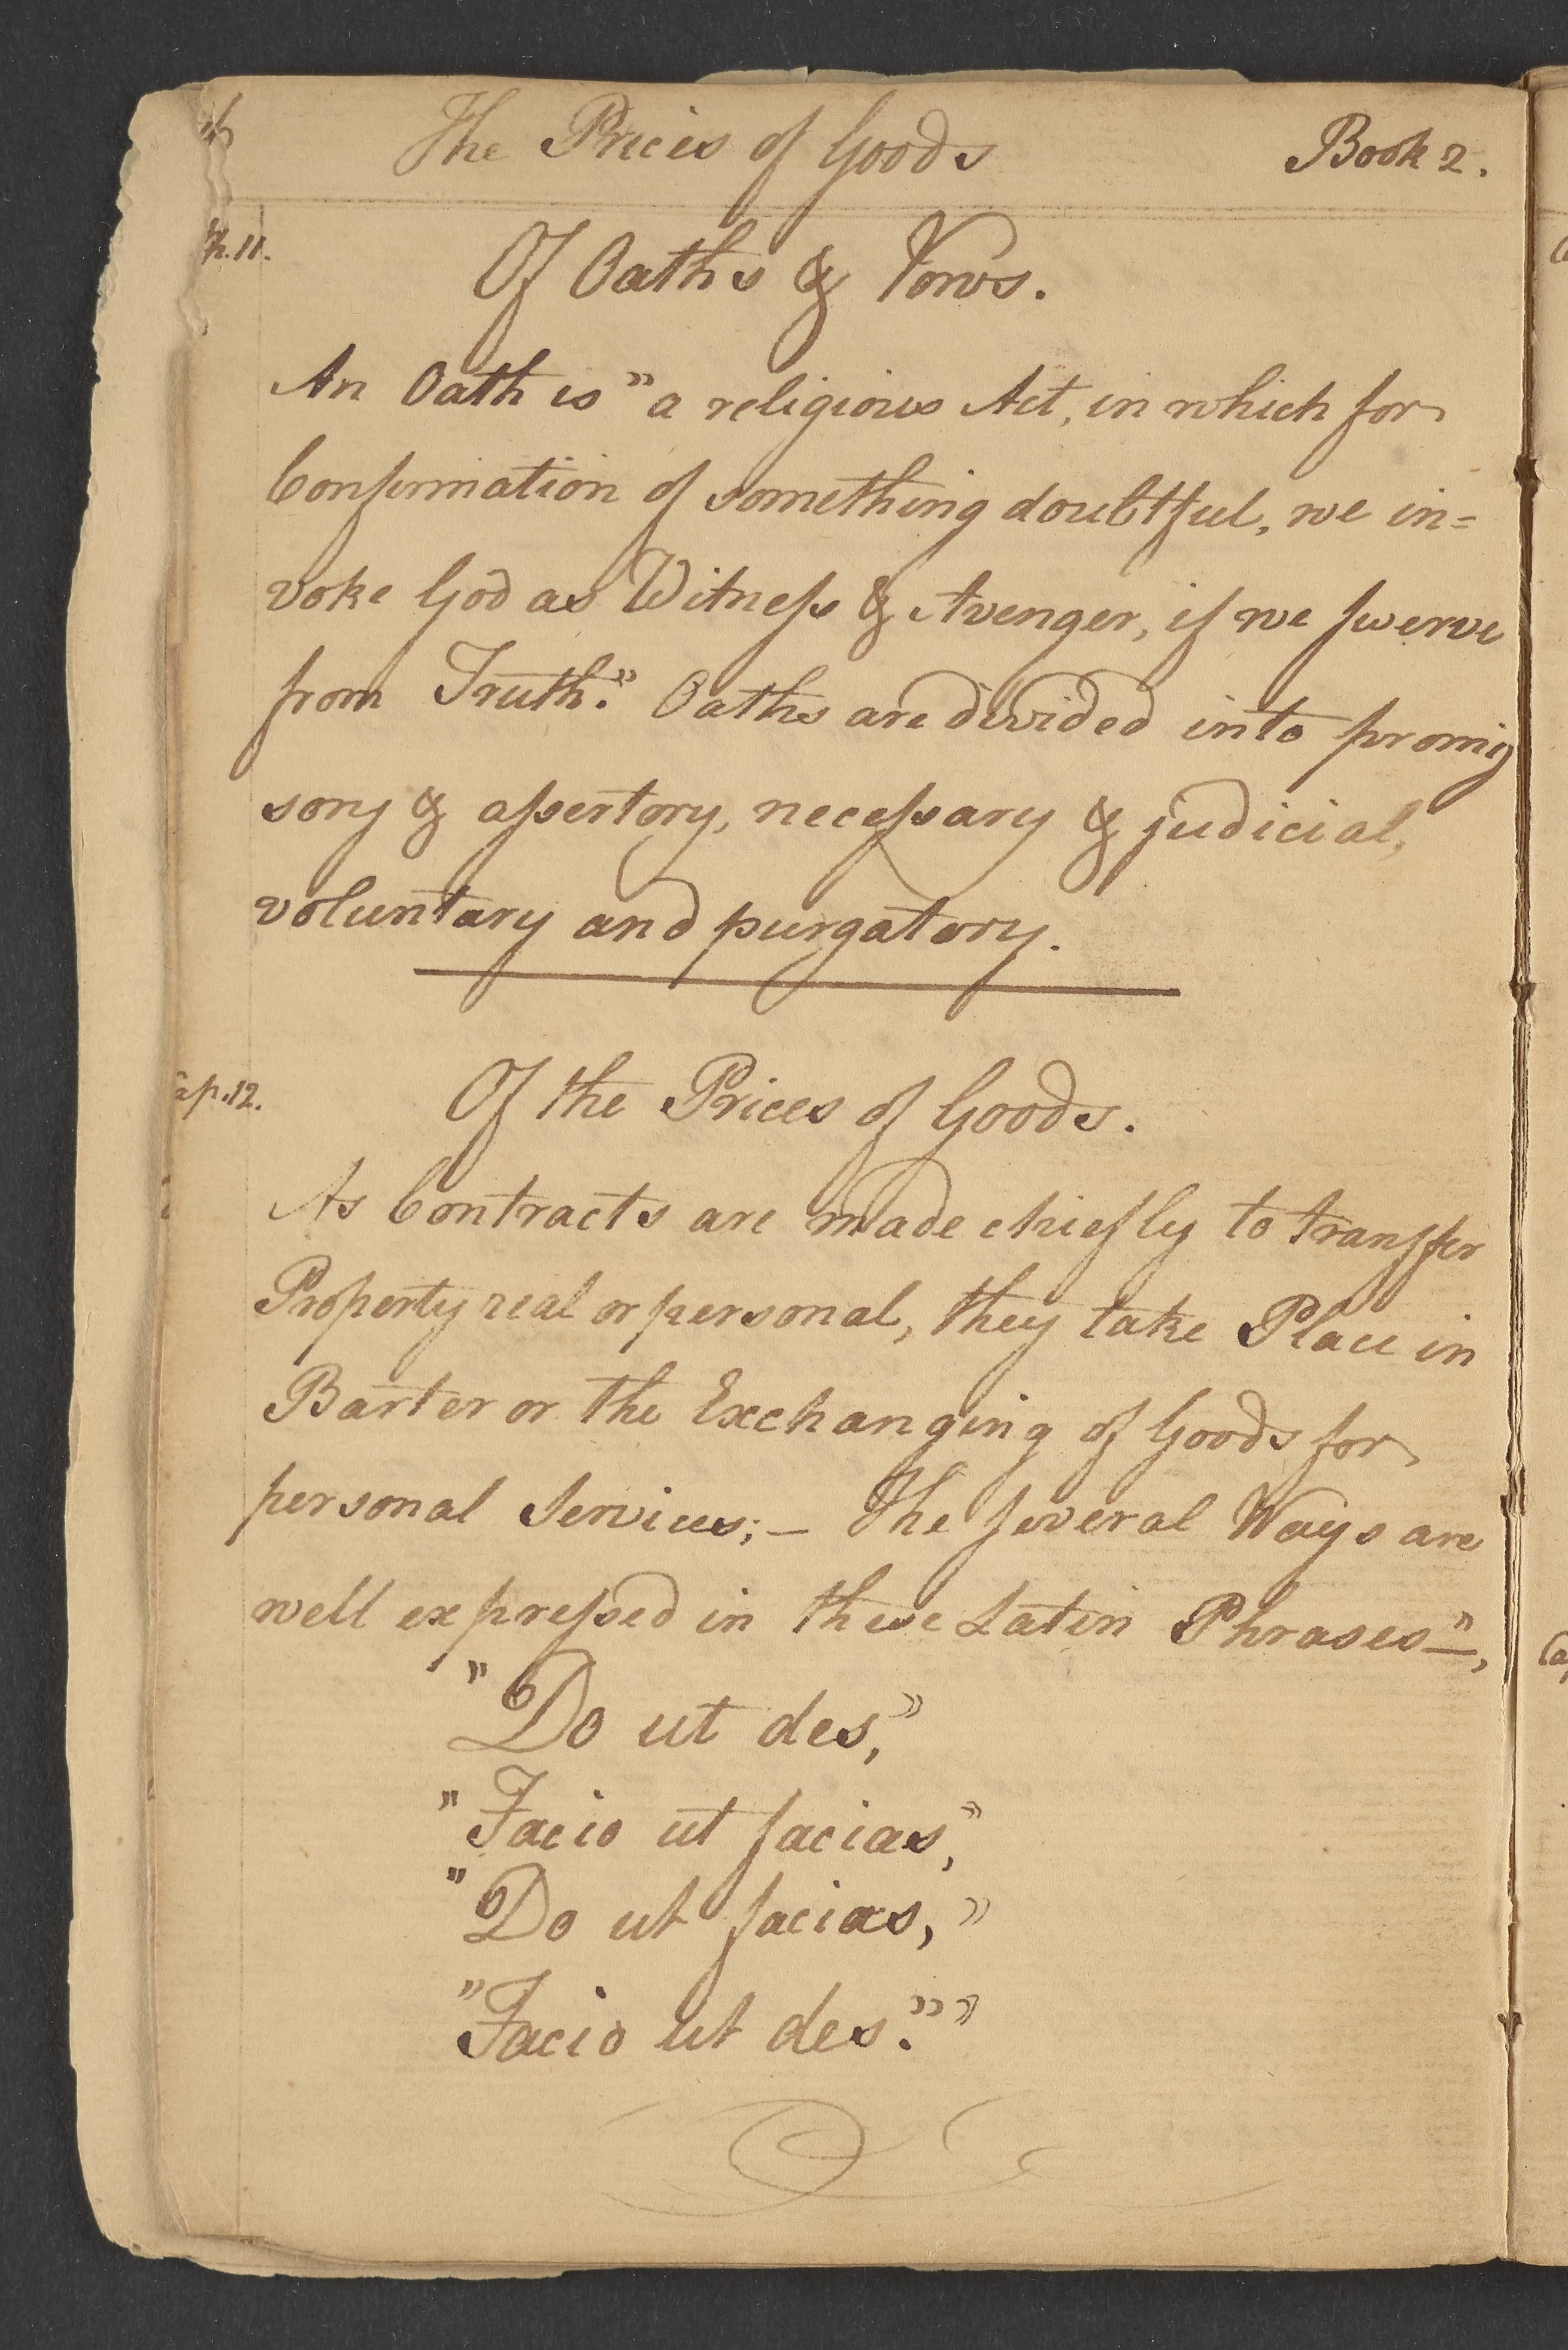 The Prices of Goods Book 2.
p. 11.
Of Oaths & Vows.
An Oath is "a religious Act, in which for
Confirmation of something doubtful, we in=
voke God as Witness & Avenger, if we swerve
from Truth." Oaths are divided into promis
sory & assertory, necessary & judicial,
voluntary and purgatory.
ap. 12.
Of the Prices of Goods.
As Contracts are made chiefly to transfer
Property real or personal, they take Place in
Barter or the Exchanging of Goods for
personal Services; — The several Ways are
well expressed in these Latin Phrases "—,
"Do ut des,"
"Facio ut facias,"
"Do ut facias,"
"Facio ut des.""